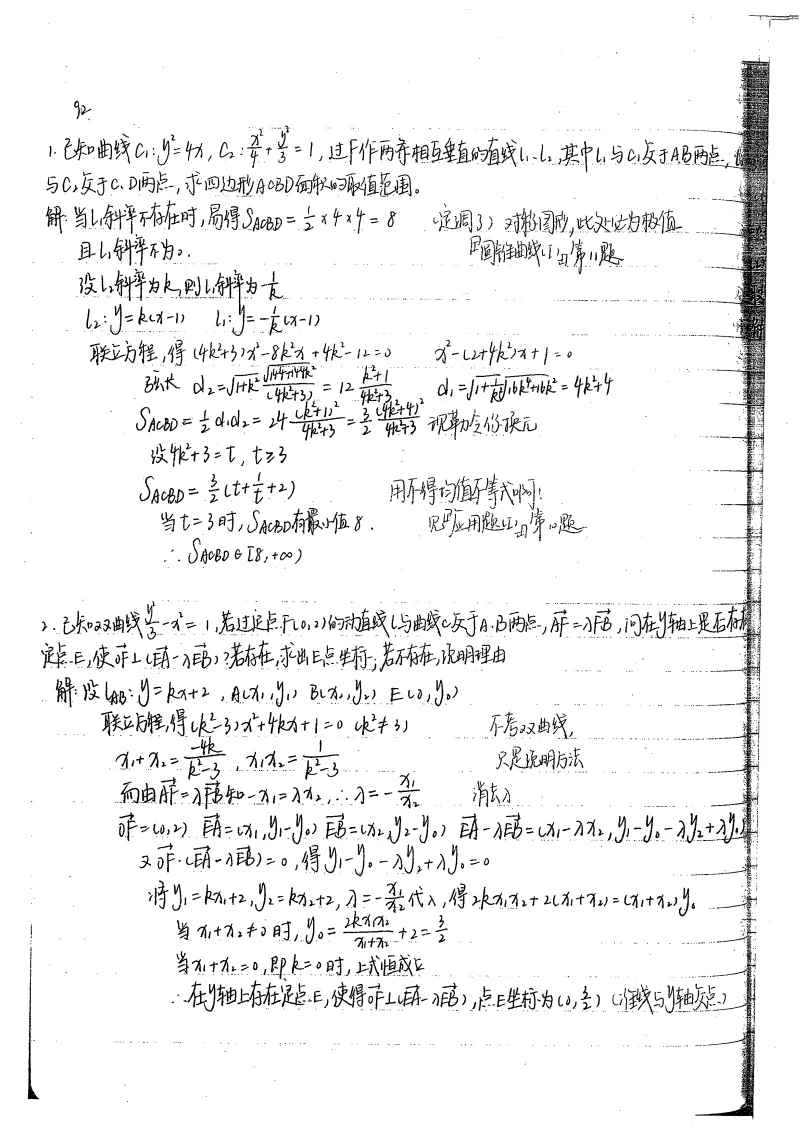 92
1. 已知曲线C₁: y²=4x, C₂: x²/4+y²/3=1, 过F作两条相互垂直的直线l₁、l₂, 其中l₁与C₁交于AB两点, l₂
与C₂交于C、D两点, 求四边形ACBD面积的取值范围。
解: 当l₁斜率不存在时, 易得S_ACBD=½×4×4=8 (定调了) 对称图形, 此处必为极值
且l₁斜率不为0. 见"圆锥曲线(I)"第11题
设l₂斜率为k, 则l₁斜率为-1/k
l₂: y=k(x-1) l₁: y=-1/k(x-1)
联立方程, 得 (4k²+3)x²-8k²x+4k²-12=0 x²-(2+4k²)x+1=0
弦长 d₂=√(1+k²) √(144+144k²)/(4k²+3) = 12 (k²+1)/(4k²+3) d₁=√(1+1/k²) √(16k⁴+16k²) = 4k²+4
S_ACBD=½d₁d₂=24 (k²+1)²/(4k²+3) = 3/2 (4k²+4)²/(4k²+3) 视勒令你换元
设4k²+3=t, t≥3
S_ACBD=3/2(t+1/t+2) 用不得均值不等式啊!
当t=3时, S_ACBD有最小值8. 见"应用题(I)"第10题
∴S_ACBD∈[8,+∞)
2. 已知双曲线y²/3-x²=1, 若过定点F(0,2)的动直线l与曲线C交于A、B两点, AF→=λFB→, 问在y轴上是否存在
定点E, 使OF→⊥(EA→-λEB→)? 若存在, 求出E点坐标; 若不存在, 说明理由
解: 设l_AB: y=kx+2, A(x₁,y₁) B(x₂,y₂) E(0,y₀)
联立方程, 得(k²-3)x²+4kx+1=0 (k²≠3) 不考双曲线,
x₁+x₂=-4k/(k²-3), x₁x₂=1/(k²-3) 只是说明方法
而由AF→=λFB→知-x₁=λx₂, ∴λ=-x₁/x₂ 消去λ
OF→=(0,2) EA→=(x₁,y₁-y₀) EB→=(x₂,y₂-y₀) EA→-λEB→=(x₁-λx₂, y₁-y₀-λy₂+λy₀)
又OF→·(EA→-λEB→)=0, 得y₁-y₀-λy₂+λy₀=0
将y₁=kx₁+2, y₂=kx₂+2, λ=-x₁/x₂代入, 得2kx₁x₂+2(x₁+x₂)=(x₁+x₂)y₀
当x₁+x₂≠0时, y₀=2kx₁x₂/(x₁+x₂)+2=3/2
当x₁+x₂=0, 即k=0时, 上式恒成立
∴在y轴上存在定点E, 使得OF→⊥(EA→-λEB→), 点E坐标为(0,3/2) (准线与y轴交点)